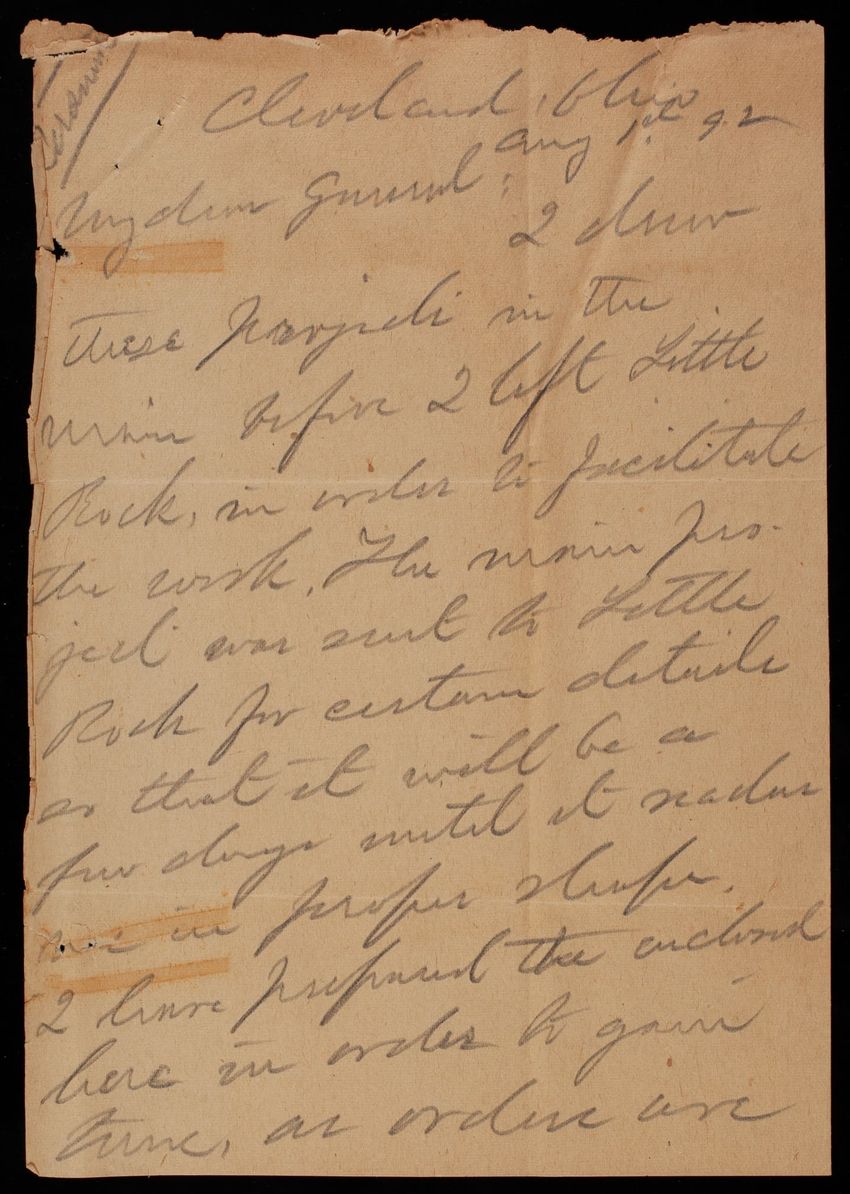 Cleveland, Ohio
Aug 1st 92
My dear General:
I drew
these projects in the
main before I left Little
Rock, in order to facilitate
the work. The main pro-
ject was sent to Little
Rock for certain details
so that it will be a
few days until it reaches
me in proper shape.
I have prepared the enclosed
here in order to gain
time, as orders are